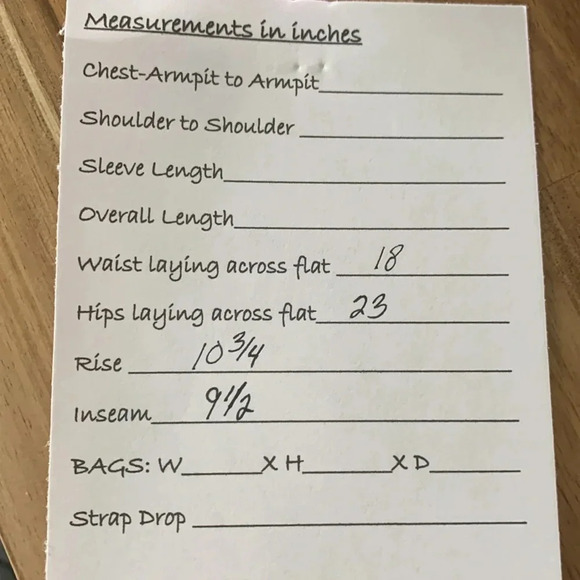 Measurements in inches
Chest-Armpit to Armpit
Shoulder to Shoulder
Sleeve Length
Overall Length
Waist laying across flat 18
Hips laying across flat 23
Rise 10 3/4
Inseam 9 1/2
BAGS: W X H X D
Strap Drop